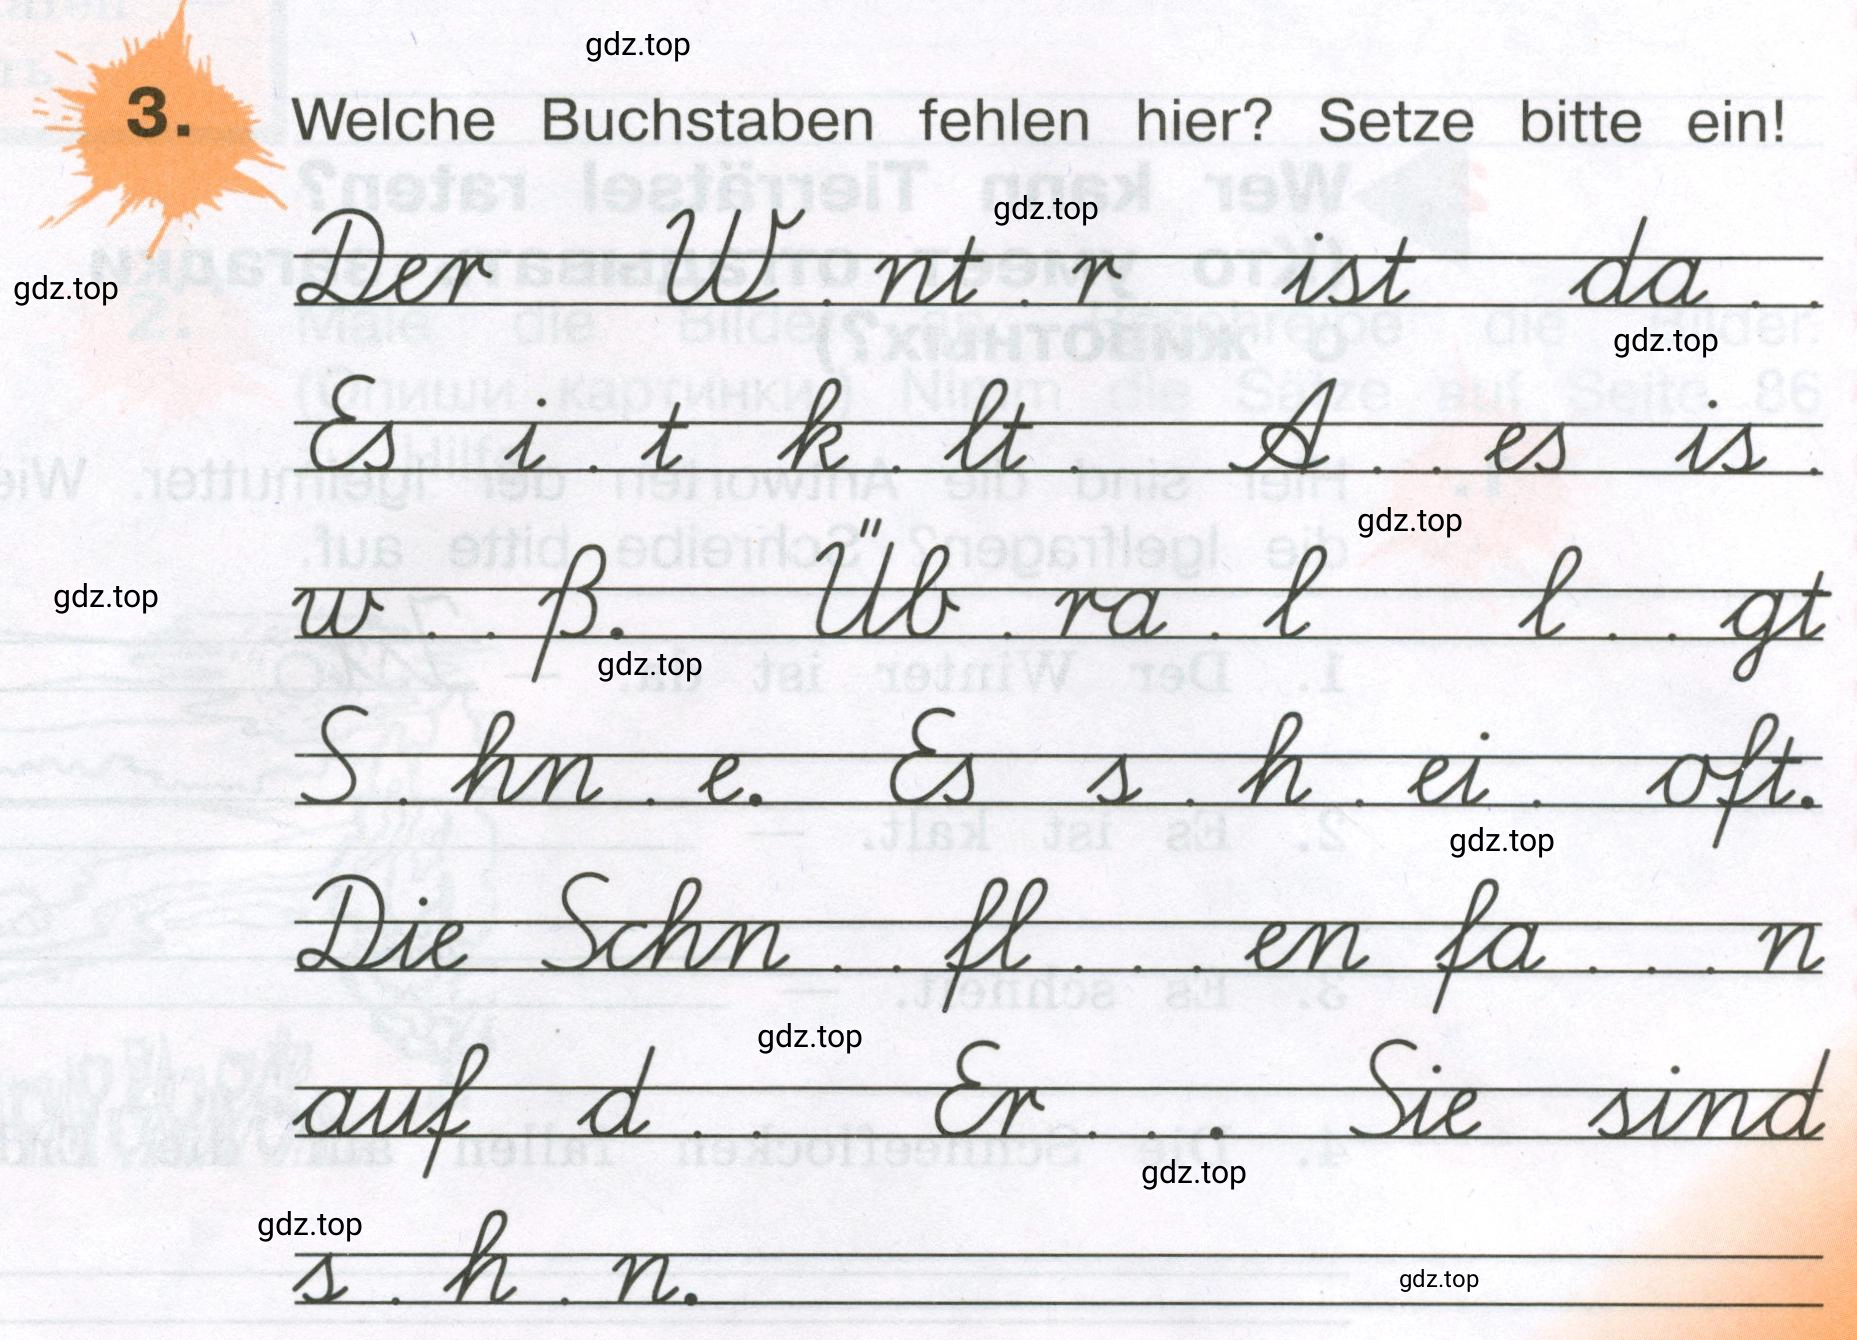 gdz.top
3. Welche Buchstaben fehlen hier? Setze bitte ein!
gdz.top
Der W . nt . r ist da . .
gdz.top
gdz.top
Es i . t k . lt . A . . es is .
gdz.top
w . . ß. Üb . ra . l l . . gt
gdz.top
gdz.top
S . hn . e. Es s . h . ei . oft.
gdz.top
Die Schn . . fl . . . en fa . . . n
gdz.top
auf d . . Er . . . Sie sind
gdz.top
gdz.top
s . h . n.
gdz.top